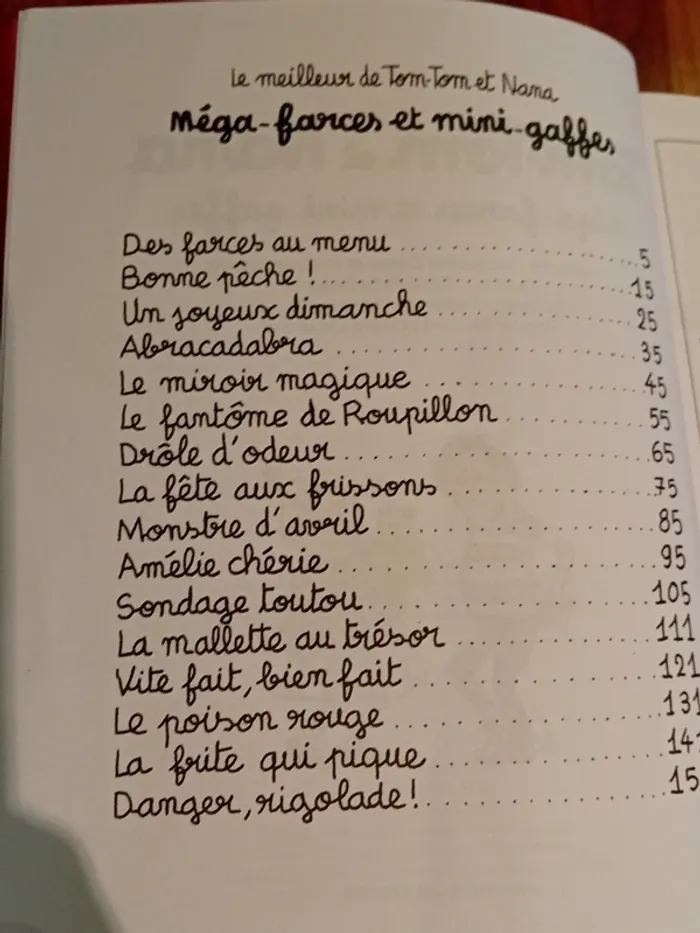 Le meilleur de Tom-Tom et Nana
Méga-farces et mini-gaffes
Des farces au menu 5
Bonne pêche ! 15
Un joyeux dimanche 25
Abracadabra 35
Le miroir magique 45
Le fantôme de Roupillon 55
Drôle d'odeur 65
La fête aux frissons 75
Monstre d'avril 85
Amélie chérie 95
Sondage toutou 105
La mallette au trésor 111
Vite fait, bien fait 121
Le poison rouge 131
La frite qui pique
Danger, rigolade !